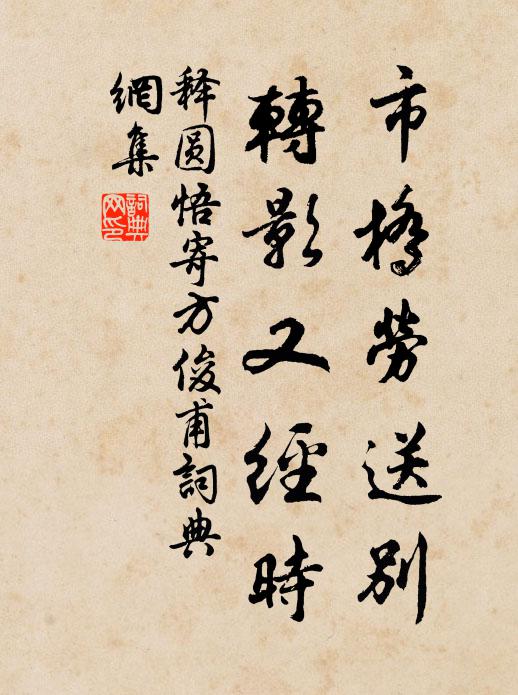 市橋勞送别
轉影又經時
释圆悟寄方俊甫詞典
網集
詞典
网印